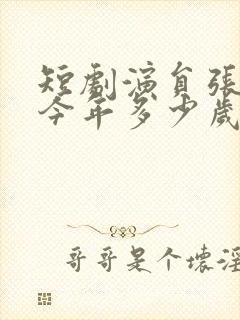 短剧演员张
今年多少岁
哥哥是个坏淫